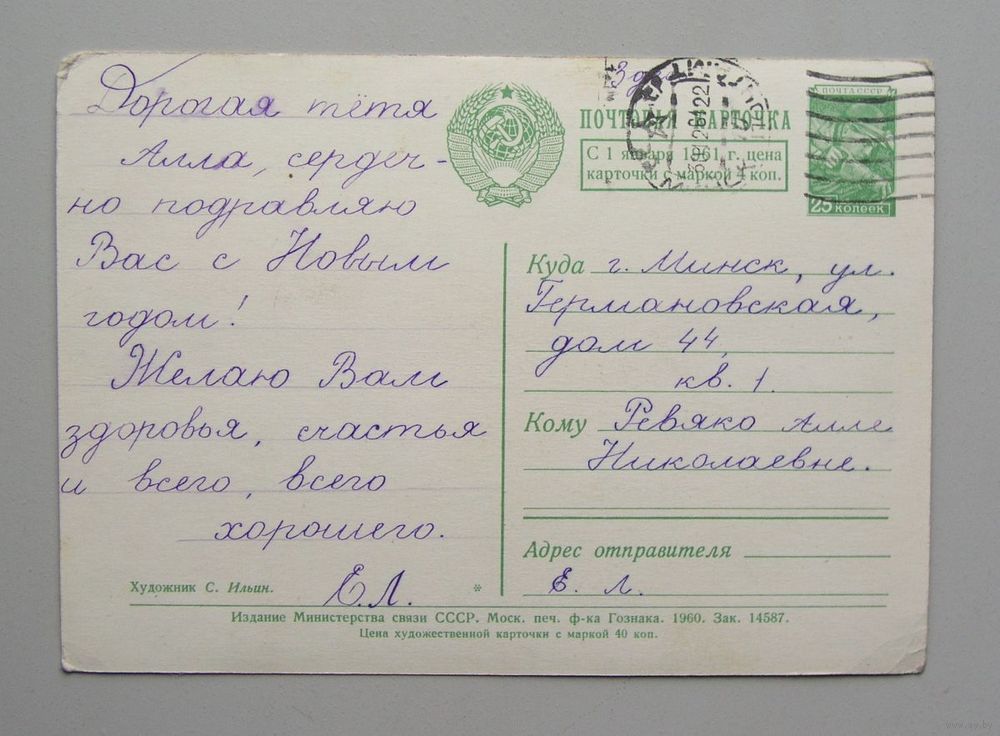 Дорогая тётя
Алла, сердеч-
но подравляю
Вас с Новым
годом!
Желаю Вам
здоровья, счастья
и всего, всего
хорошего.
Е.Л.
Художник С. Ильин.
*
ПОЧТОВАЯ КАРТОЧКА
С 1 января 1961 г. цена
карточки с маркой коп.
ПОЧТА СССР
25 копеек
МИНСК
Куда г. Минск, ул.
Германовская,
дом 44,
кв. 1.
Кому Ревяко Алле
Николаевне.
Адрес отправителя
Е. Л.
Издание Министерства связи СССР. Моск. печ. ф-ка Гознака. 1960. Зак. 14587.
Цена художественной карточки с маркой 40 коп.